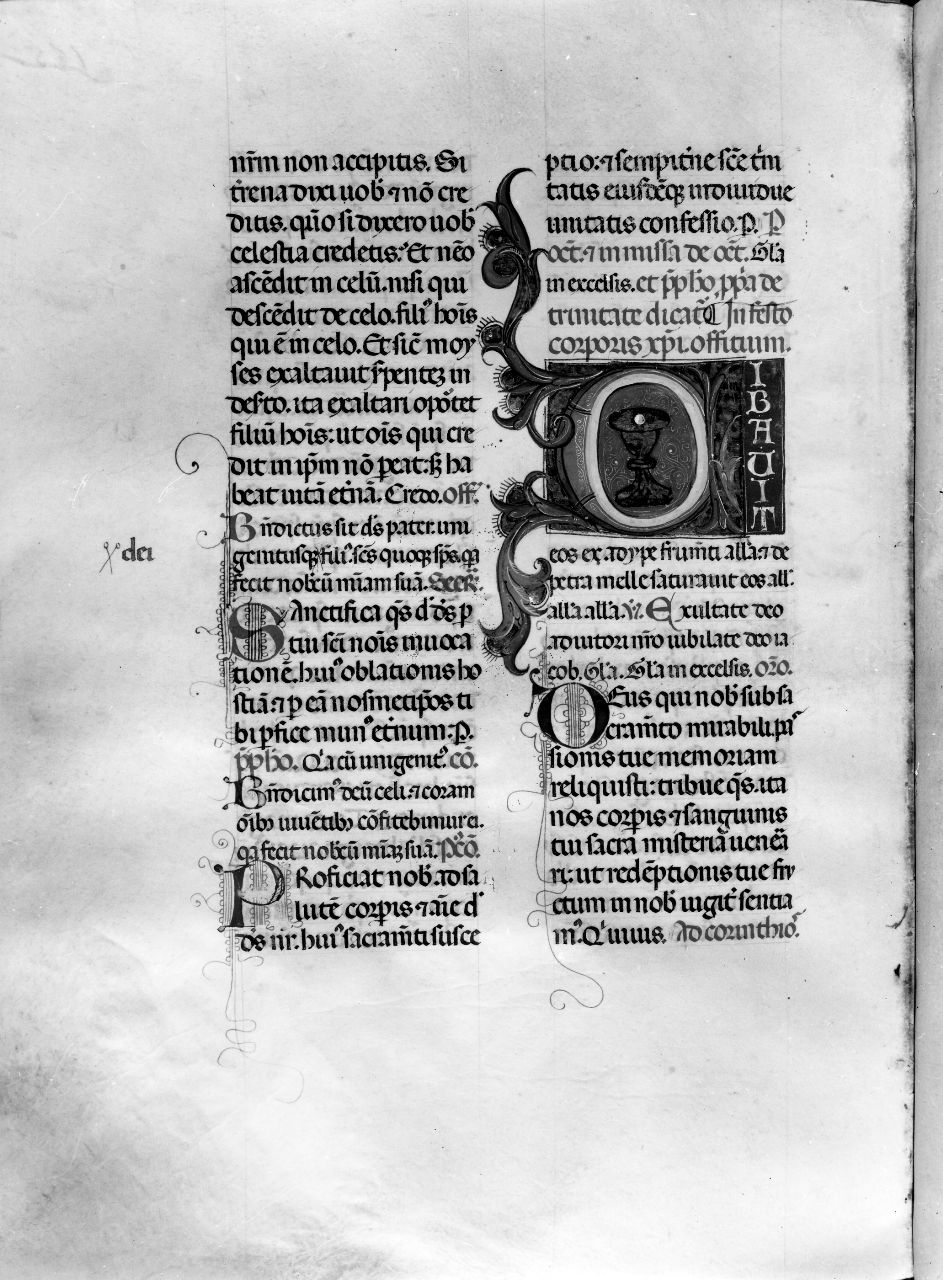 nr̄m non accipitis. Si
t̄rena dixi uob' ⁊ nō cre
ditis. quō si dixero uob'
celestia credetis? Et nēo
ascēdit in celū. nisi qui
descēdit de celo. fili' hoīs
qui ē in celo. Et sic̄ moy
ses exaltauit s̄pentez in
des̄to. ita exaltari opōtet
filiū hoīs: ut oīs qui cre
dit in ip̄m nō peat: sꝫ ha
beat uitā et̄nā. Credo. off.
Bn̄dictus sit ds̄ pater. uni
genitusqꝫ fili' sc̄s quoqꝫ sp̄s. qa
fecit nobcū mīam suā. Secr̄.
dei
Sanctifica qs̄ d' ds̄ p
tui sc̄i noīs inuoca
tionē. hui' oblationis ho
stiā: ⁊ p eā nosmetip̄os ti
bi pfice mun' et̄num: P.
pp̄ho. Q'a cū unigenit'. cō.
Bn̄dicim' deū celi: ⁊ coram
oībꝫ uiuētibꝫ cōfitebimur ei.
qa fecit nobcū mīaꝫ suā. Pcō.
Proficiat nob' ad sa
lutē corpis ⁊ aīe d'
ds̄ nr̄. hui' sacram̄ti susce
ptio: ⁊ sempit̄ne sc̄e t̄ni
tatis eiusdēqꝫ indiuidue
unitatis confessio. P. P
oct̄. ⁊ in missa de oct̄. Gl̄a
in excelsis. et pp̄ho. ppa de
trinitate dicat̄. In festo
corporis xp̄i. offitium.
CIBAUIT
eos ex adype frum̄ti all̄a. ⁊ de
petra melle saturauit eos all'.
all̄a all̄a. V̄. Exultate deo
adiutori nr̄o iubilate deo ia
cob. Gl̄a. Gl̄a in excelsis. or̄o.
Deus qui nob' sub sa
cram̄to mirabili. pas
sionis tue memoriam
reliquisti: tribue qs̄. ita
nos corpis ⁊ sanguinis
tui sacra misteria uenēa
ri: ut redēptionis tue fru
ctum in nob' iugit̄ sentia
m'. Q' uiuis. Ad corinthio'.